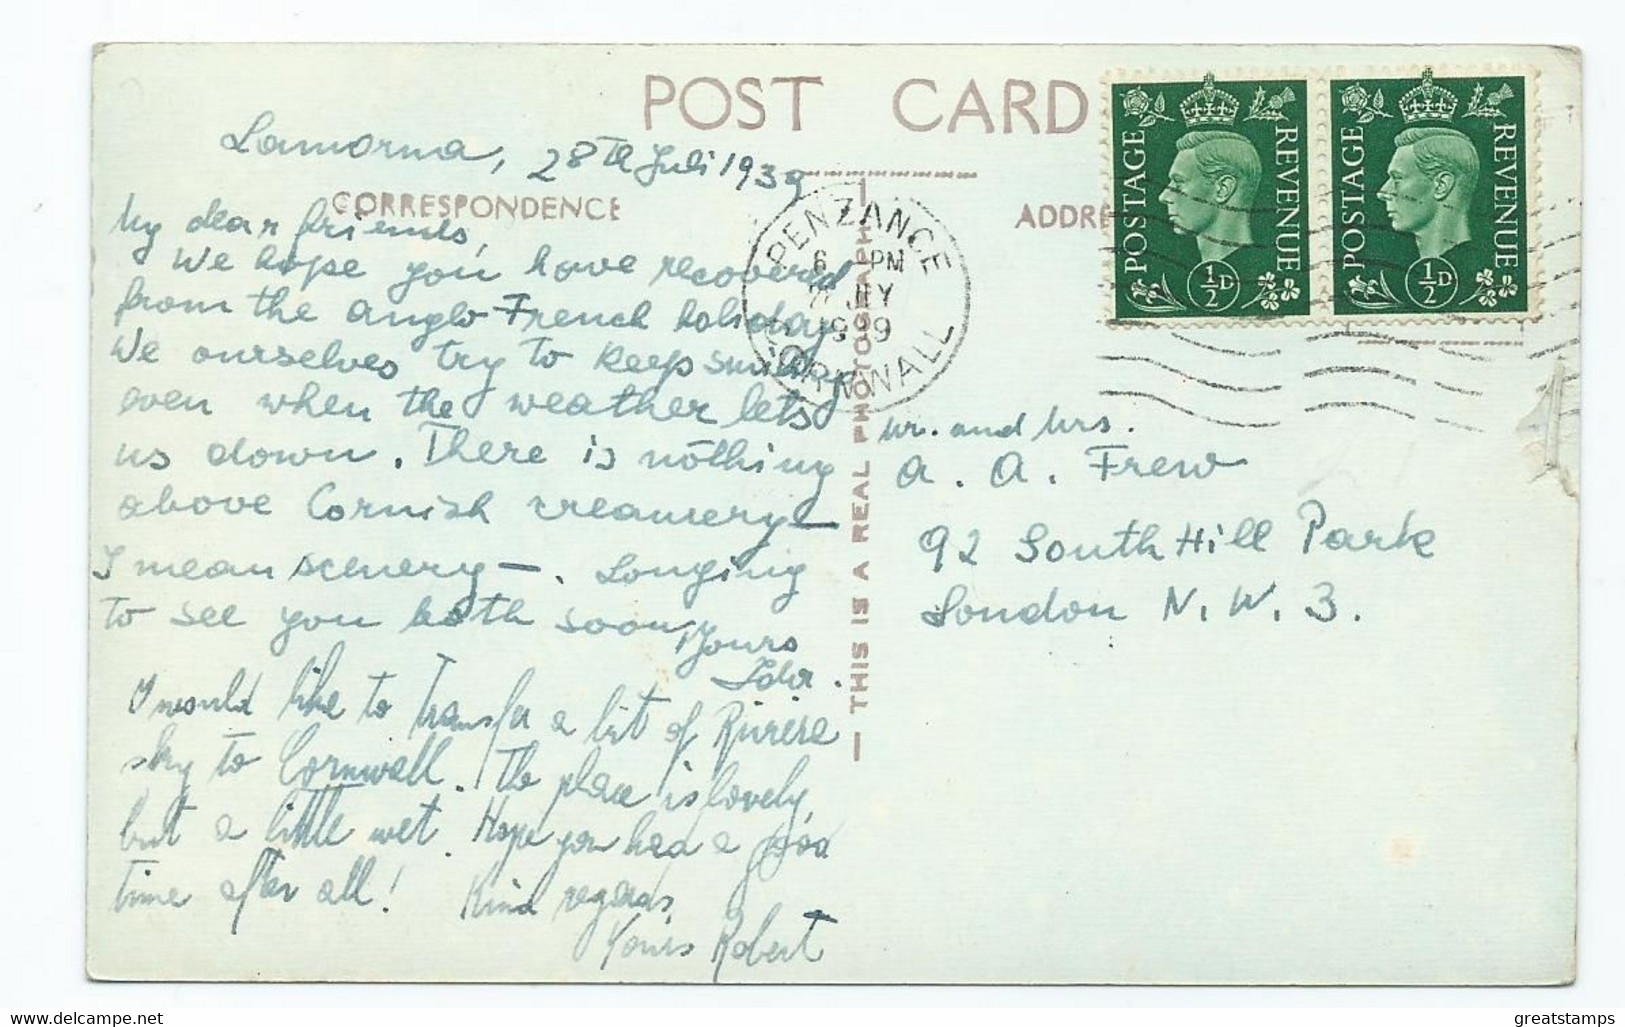 POST CARD
Lamorna, 28th Juli 1939
CORRESPONDENCE
My dear friends,
We hope you have recovered
from the anglo French holiday
We ourselves try to keep smiling
even when the weather lets
us down. There is nothing
above Cornish creamery —
I mean scenery —. Longing
to see you both soon,
Yours
I would like to transfer a bit of Riviera
sky to Cornwall. The place is lovely,
but a little wet. Hope you had a good
time after all! Kind regards,
Yours Robert
— THIS IS A REAL PHOTOGRAPH —
PENZANCE
6 PM
JLY
1939
CORNWALL
ADDRE
POSTAGE REVENUE
½D
POSTAGE REVENUE
½D
Mr. and Mrs.
A. A. Frew
92 South Hill Park
London N.W.3.
greatstamps